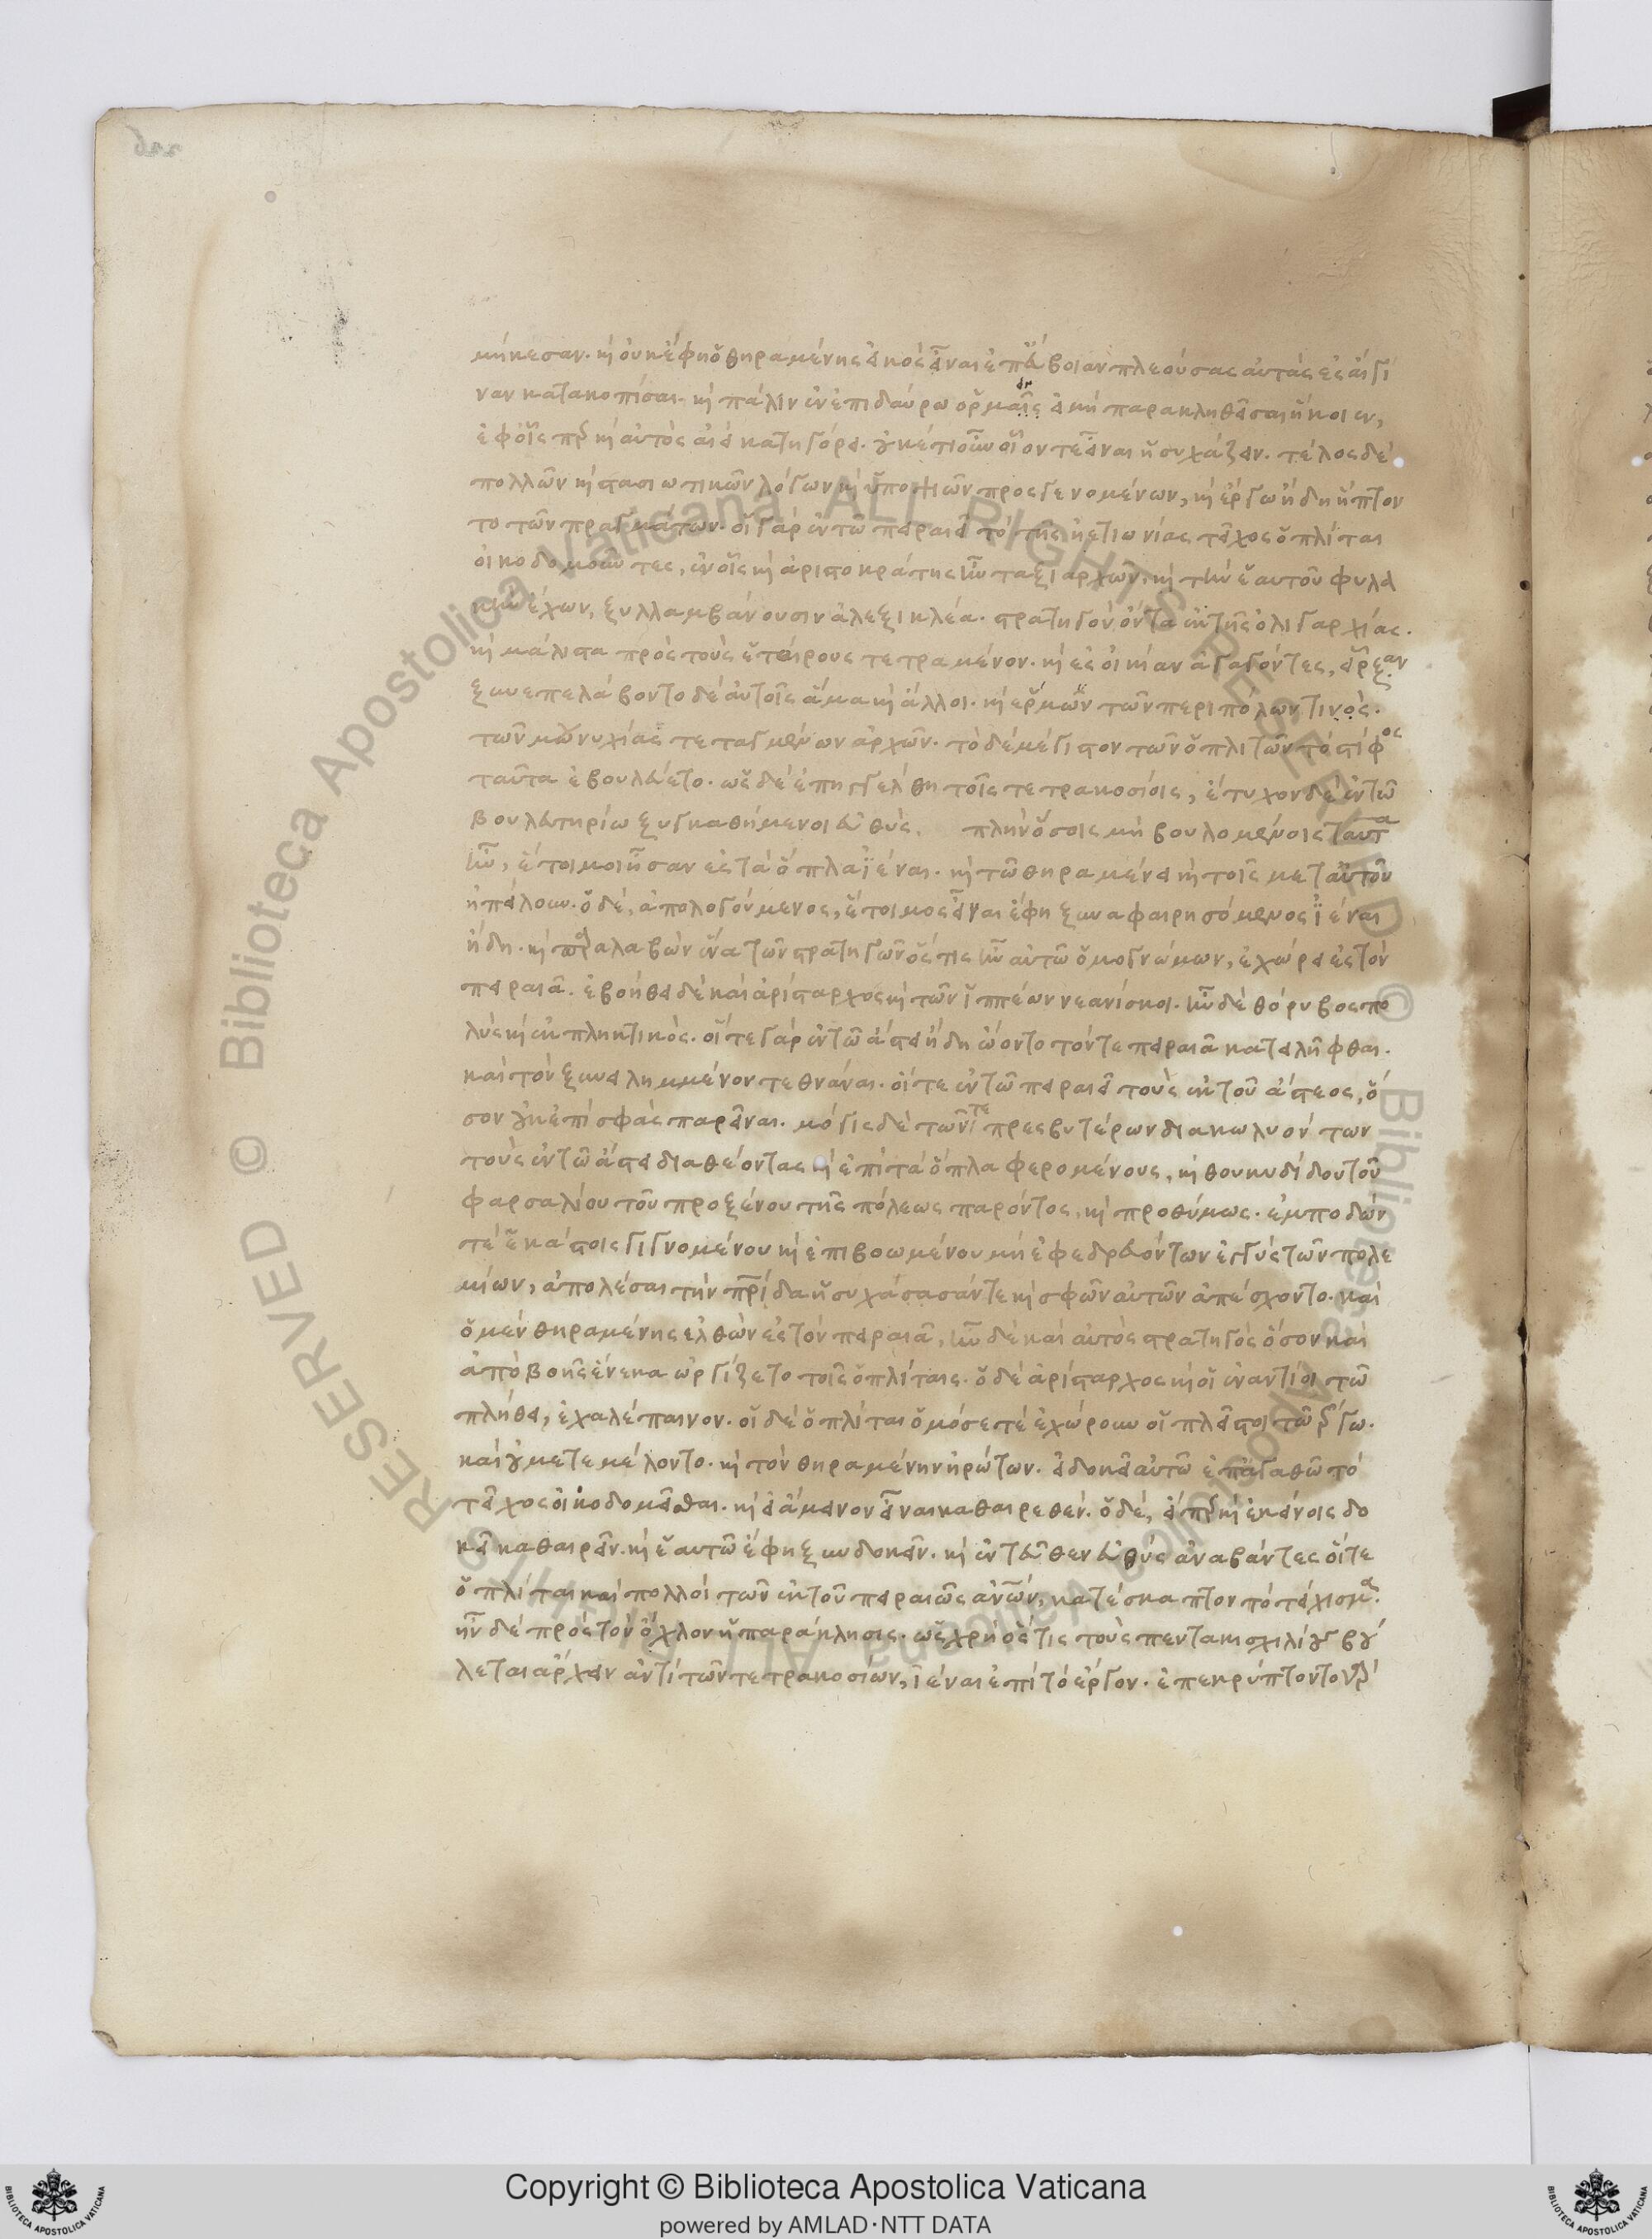 μήκεσαν· καὶ οὐκ ἔφη ὁ θηραμένης εἰκὸς εἶναι ἐπ' εὔβοιαν πλεούσας αὐτὰς ἐς αἴγι
ναν κατακολπίσαι· καὶ πάλιν ἐν ἐπιδαύρω ὁρμεῖν εἰ μὴ παρακληθεῖσαι ἥκοιεν,
ἐφ' οἷς περ καὶ αὐτὸς αἰεὶ κατηγόρει· οὐκέτι οὖν οἷόν τε εἶναι ἡσυχάζειν· τέλος δὲ
πολλῶν καὶ στασιωτικῶν λόγων καὶ ὑποψιῶν προσγενομένων, καὶ ἔργω ἤδη ἥπτον
το τῶν πραγμάτων· οἱ γὰρ ἐν τῶ πειραιεῖ τὸ τῆς ἠετιωνίας τεῖχος ὁπλῖται
οἰκοδομοῦντες, ἐν οἷς καὶ ἀριστοκράτης ἦν ταξιαρχῶν, καὶ τὴν ἑαυτοῦ φυλα
κὴν ἔχων, ξυλλαμβάνουσιν ἀλεξικλέα· στρατηγὸν ὄντα ἐκ τῆς ὀλιγαρχίας·
καὶ μάλιστα πρὸς τοὺς ἑταίρους τετραμένον· καὶ ἐς οἰκίαν ἀγαγόντες, εἷρξαν
ξυνεπελάβοντο δὲ αὐτοῖς ἅμα καὶ ἄλλοι· καὶ ἕρμων τῶν περιπόλων τινὸς·
τῶν μουνυχίασι τεταγμένων ἄρχων· τὸ δὲ μέγιστον τῶν ὁπλιτῶν τὸ στίφος
ταῦτα ἐβουλεύετο· ὡς δὲ ἐπηγγέλθη τοῖς τετρακοσίοις, ἔτυχον δὲ ἐν τῶ
βουλευτηρίω ξυγκαθήμενοι εὐθὺς, πλὴν ὅσοις μὴ βουλομένοις ταῦτα
ἦν, ἕτοιμοι ἦσαν ἐς τὰ ὅπλα ἰέναι· καὶ τῶ θηραμένει καὶ τοῖς μετ' αὐτοῦ
ἠπείλουν· ὁ δὲ, ἀπολογούμενος, ἕτοιμος εἶναι ἔφη ξυναφαιρησόμενος ἰέναι
ἤδη· καὶ παραλαβὼν ἕνα τῶν στρατηγῶν ὅς τις ἦν αὐτῶ ὁμογνώμων, ἐχώρει ἐς τὸν
πειραιᾶ· ἐβοήθει δὲ καὶ ἀρίσταρχος καὶ τῶν ἱππέων νεανίσκοι· ἦν δὲ θόρυβος πο
λὺς καὶ ἐκπληκτικὸς· οἵ τε γὰρ ἐν τῶ ἄστει ἤδη ὤοντο τόν τε πειραιᾶ κατειλῆφθαι·
καὶ τὸν ξυνειλημμένον τεθνάναι· οἵ τε ἐν τῶ πειραιεῖ τοὺς ἐκ τοῦ ἄστεος, ὅ
σον οὐκ ἐπὶ σφὰς παρεῖναι· μόγις δὲ τῶν τε πρεσβυτέρων διακωλυόντων
τοὺς ἐν τῶ ἄστει διαθέοντας καὶ ἐπὶ τὰ ὅπλα φερομένους, καὶ θουκυδίδου τοῦ
φαρσαλίου τοῦ προξένου τῆς πόλεως παρόντος, καὶ προθύμως· ἐμποδών
τε ἑκάστοις γιγνομένου καὶ ἐπιβοωμένου μὴ ἐφεδρευόντων ἐγγὺς τῶν πολε
μίων, ἀπολέσαι τὴν πατρίδα ἡσυχάσασάν τε καὶ σφῶν αὐτῶν ἀπέσχοντο· καὶ
ὁ μὲν θηραμένης ἐλθὼν ἐς τὸν πειραιᾶ, ἦν δὲ καὶ αὐτὸς στρατηγὸς ὅσον καὶ
ἀπὸ βοῆς ἕνεκα ὠργίζετο τοῖς ὁπλίταις· ὁ δὲ ἀρίσταρχος καὶ οἱ ἐναντίοι τῶ
πλήθει, ἐχαλέπαινον· οἱ δὲ ὁπλῖται ὁμόσε τε ἐχώρουν οἱ πλεῖστοι τῶ ἔργω·
καὶ οὐ μετεμέλοντο· καὶ τὸν θηραμένην ἠρώτων· εἰ δοκεῖ αὐτῶ ἐπ' ἀγαθῶ τὸ
τεῖχος οἰκοδομεῖσθαι· καὶ εἰ ἄμεινον εἶναι καθαιρεθέν· ὁ δὲ, εἴπερ καὶ ἐκείνοις δο
κεῖ καθαιρεῖν· καὶ ἑαυτῶ ἔφη ξυνδοκεῖν· καὶ ἐντεῦθεν εὐθὺς ἀναβάντες οἵ τε
ὁπλῖται καὶ πολλοὶ τῶν ἐκ τοῦ πειραιῶς ἀνθρώπων, κατέσκαπτον τὸ τείχισμα·
ἦν δὲ πρὸς τὸν ὄχλον ἡ παράκλησις· ὡς χρὴ ὅς τις τοὺς πεντακισχιλίους βού
λεται ἄρχειν ἀντὶ τῶν τετρακοσίων, ἰέναι ἐπὶ τὸ ἔργον· ἐπεκρύπτοντο γὰρ
Copyright © Biblioteca Apostolica Vaticana
powered by AMLAD·NTT DATA